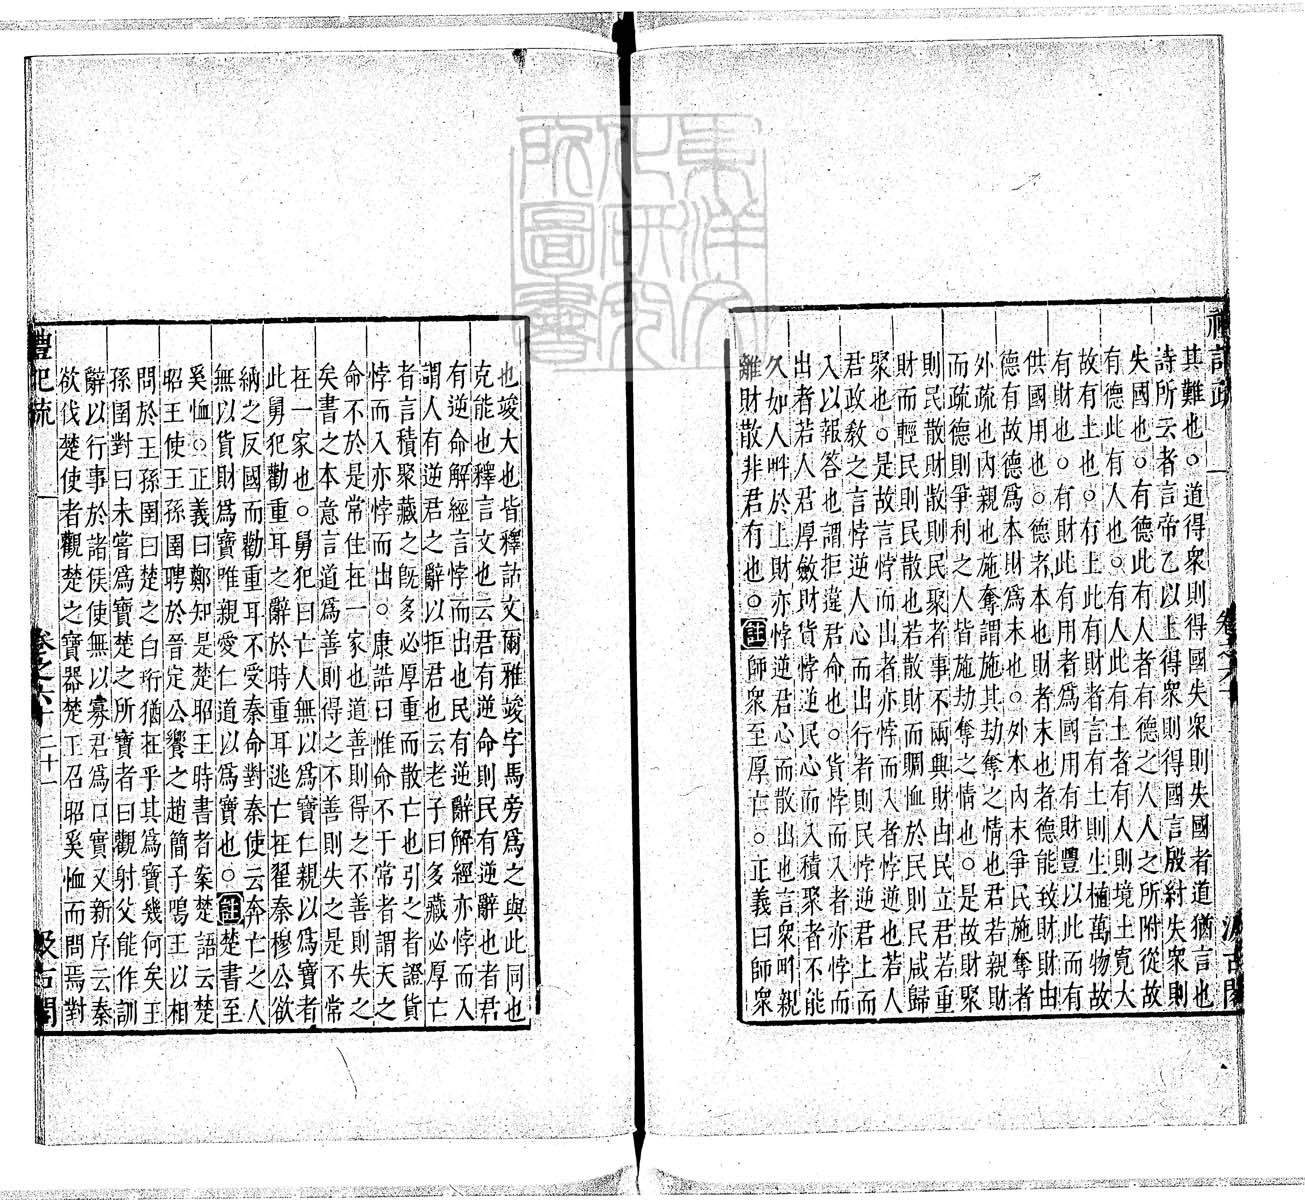 禮記疏　卷之六十　汲古閣
其難也○道得衆則得國失衆則失國者道猶言也
詩所云者言帝乙以上得衆則得國言殷紂失衆則
失國也○有德此有人者有德之人人之所附從故
有德此有人也○有人此有土者有人則境土寛大
故有土也○有土此有財者言有土則生植萬物故
有財也○有財此有用者爲國用有財豐以此而有
供國用也○德者本也財者末也者德能致財財由
德有故德爲本財爲末也○外本內末爭民施奪者
外疏也內親也施奪謂施其劫奪之情也君若親財
而疏德則爭利之人皆施劫奪之情也○是故財聚
則民散財散則民聚者事不兩興財由民立君若重
財而輕民則民散也若散財而賙恤於民則民咸歸
聚也○是故言悖而出者亦悖而入者悖逆也若人
君政敎之言悖逆人心而出行者則民悖逆君上而
入以報答也謂拒違君命也○貨悖而入者亦悖而
出者若人君厚斂財貨悖逆民心而入積聚者不能
久如人畔於上財亦悖逆君心而散出也言衆畔親
離財散非君有也○註師衆至厚亡○正義曰師衆
也峻大也皆釋詁文爾雅峻字馬旁爲之與此同也
克能也釋言文也云君有逆命則民有逆辭也者君
有逆命解經言悖而出也民有逆辭解經亦悖而入
謂人有逆君之辭以拒君也云老子曰多藏必厚亡
者言積聚藏之旣多必厚重而散亡也引之者證貨
悖而入亦悖而出○康誥曰惟命不于常者謂天之
命不於是常住在一家也道善則得之不善則失之
矣書之本意言道爲善則得之不善則失之是不常
在一家也○舅犯曰亡人無以爲寶仁親以爲寶者
此舅犯勸重耳之辭於時重耳逃亡在翟秦穆公欲
納之反國而勸重耳不受秦命對秦使云奔亡之人
無以貨財爲寶唯親愛仁道以爲寶也○註楚書至
奚恤○正義曰鄭知是楚昭王時書者案楚語云楚
昭王使王孫圉聘於晉定公饗之趙簡子鳴玉以相
問於王孫圉曰楚之白珩猶在乎其爲寶幾何矣王
孫圉對曰未嘗爲寶楚之所寶者曰觀射父能作訓
辭以行事於諸侯使無以寡君爲口實又新序云秦
欲伐楚使者觀楚之寶器楚王召昭奚恤而問焉對
禮記疏　卷之六十　二十一　汲古閣
東洋文化硏究所圖書